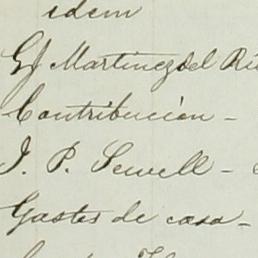 idem
GJ Martinez del Ri
Contribución -
J. P. Sewell -
Gastos de casa -